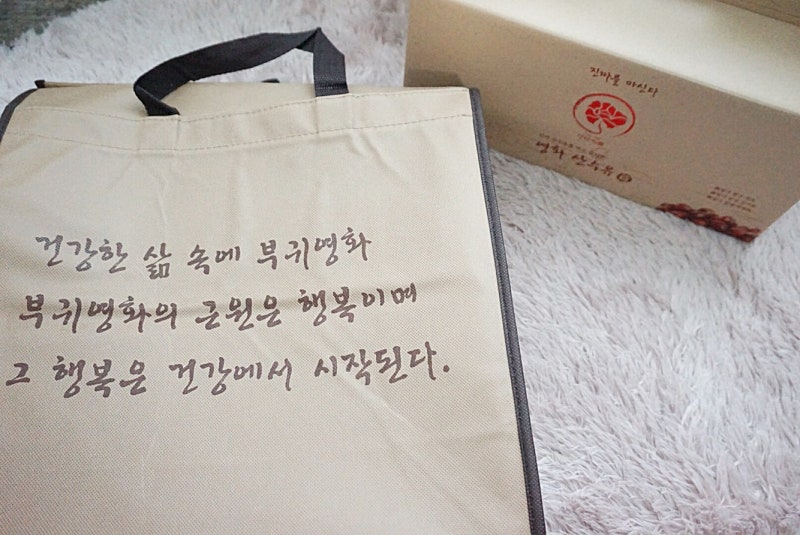 건강한 삶 속에 부귀영화
부귀영화의 근원은 행복이며
그 행복은 건강에서 시작된다.
진배를 마신다
영화 산수유